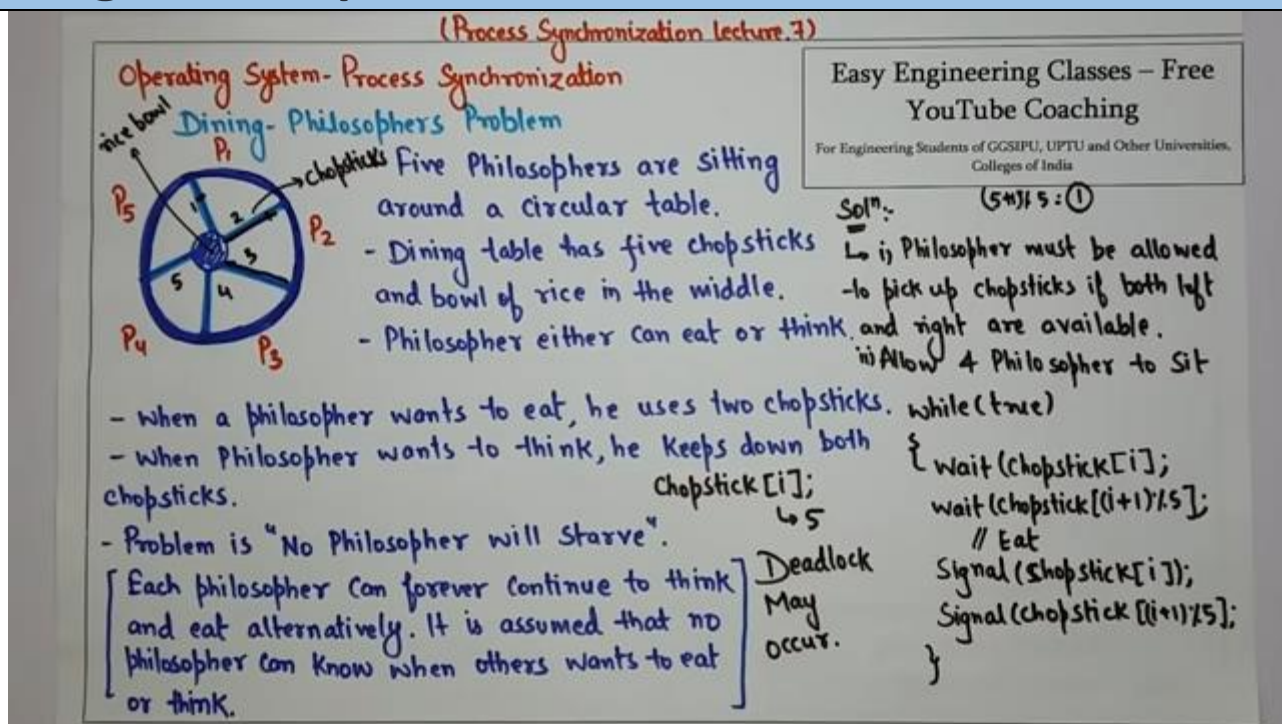 (Process Synchronization lecture.7)
Operating System- Process Synchronization
Dining- Philosophers Problem
Easy Engineering Classes – Free
YouTube Coaching
For Engineering Students of GGSIPU, UPTU and Other Universities,
Colleges of India
rice bowl
chopsticks
P1
P2
P3
P4
P5
1
2
3
4
5
Five Philosophers are sitting
around a circular table.
- Dining table has five chopsticks
and bowl of rice in the middle.
- Philosopher either can eat or think.
- when a philosopher wants to eat, he uses two chopsticks.
- when Philosopher wants to think, he keeps down both
chopsticks.
- Problem is "No Philosopher will starve".
[Each philosopher can forever continue to think
and eat alternatively. It is assumed that no
philosopher can know when others wants to eat
or think.]
Chopstick[i];
↳ 5
Deadlock
May
occur.
Solⁿ:-
(5+1)% 5 : ①
↳ i) Philosopher must be allowed
to pick up chopsticks if both left
and right are available.
ii) Allow 4 Philosopher to sit
while(true)
{ wait(chopstick[i];
wait(chopstick[(i+1)%5];
// Eat
Signal(Shopstick[i]);
Signal(chopstick[(i+1)%5];
}